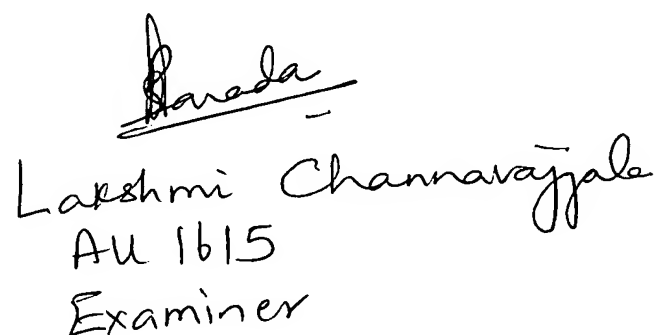 Sharada
Lakshmi Channavajjala
AU 1615
Examiner